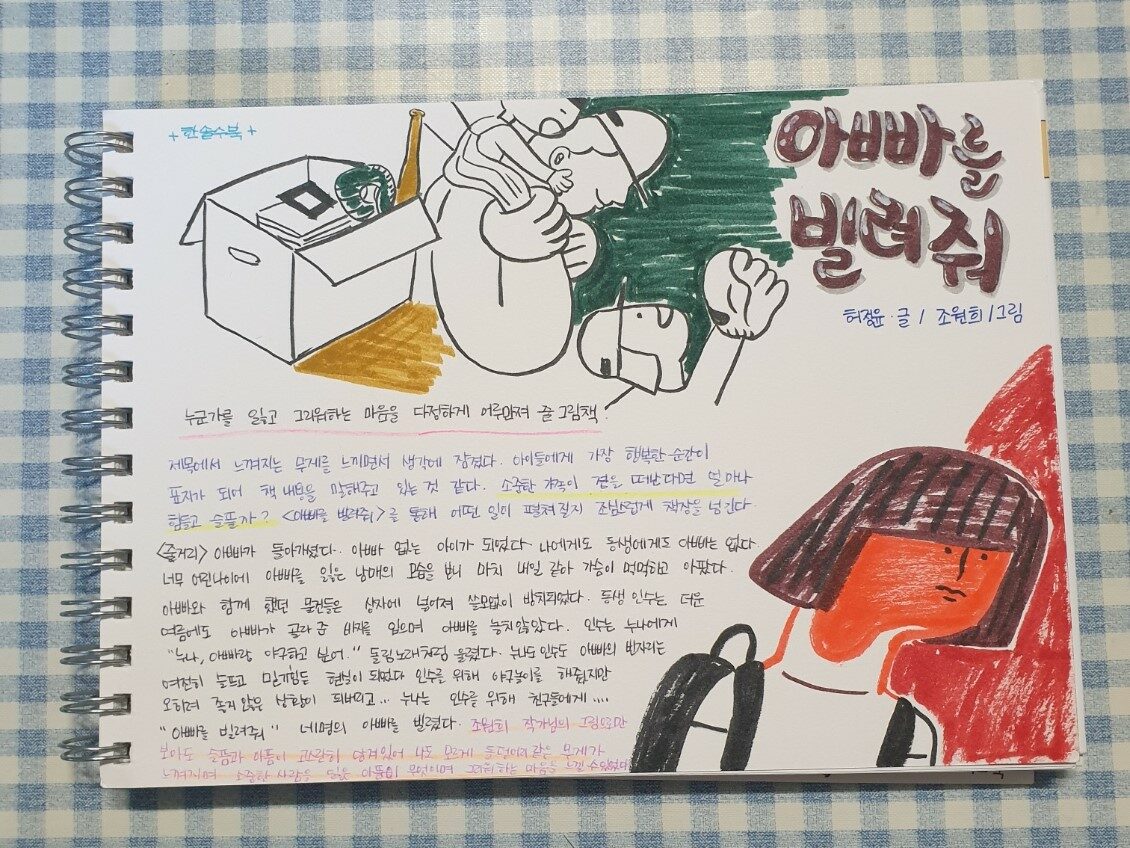 + 한솔수북 +
아빠를
빌려줘
허정윤·글 / 조원희/그림
누군가를 잃고 그리워하는 마음을 다정하게 어루만져 줄 그림책.
제목에서 느껴지는 무게를 느끼면서 생각에 잠겼다. 아이들에게 가장 행복한 순간이
표지가 되어 책 내용을 말해주고 있는 것 같다. 소중한 가족이 곁을 떠난다면 얼마나
힘들고 슬플까? <아빠를 빌려줘>를 통해 어떤 일이 펼쳐질지 조심스럽게 책장을 넘긴다
<줄거리> 아빠가 돌아가셨다. 아빠 없는 아이가 되었다. 나에게도 동생에게도 아빠는 없다.
너무 어린나이에 아빠를 잃은 남매의 모습을 보니 마치 내일 같아 가슴이 먹먹하고 아팠다.
아빠와 함께 했던 물건들은 상자에 넣어져 쓸모없이 방치되었다. 동생 인수는 더운
여름에도 아빠가 골라 준 바지를 입으며 아빠를 놓지않았다. 인수는 누나에게
"누나, 아빠랑 야구하고 싶어." 돌림노래처럼 울렸다. 누나도 인수도 아빠의 빈자리는
여전히 슬프고 믿기힘든 현실이 되었다 인수를 위해 야구놀이를 해줬지만
오히려 좋지 않은 상황이 되버리고... 누나는 인수를 위해 친구들에게 ....
"아빠를 빌려줘" 네명의 아빠를 빌렸다. 조원희 작가님의 그림으로만
보아도 슬픔과 아픔이 고스란히 담겨있어 나도 모르게 무게가
느껴지며 소중한 사람을 잃은 아픔이 무엇이며 그리워하는 마음을 느낄 수있었다